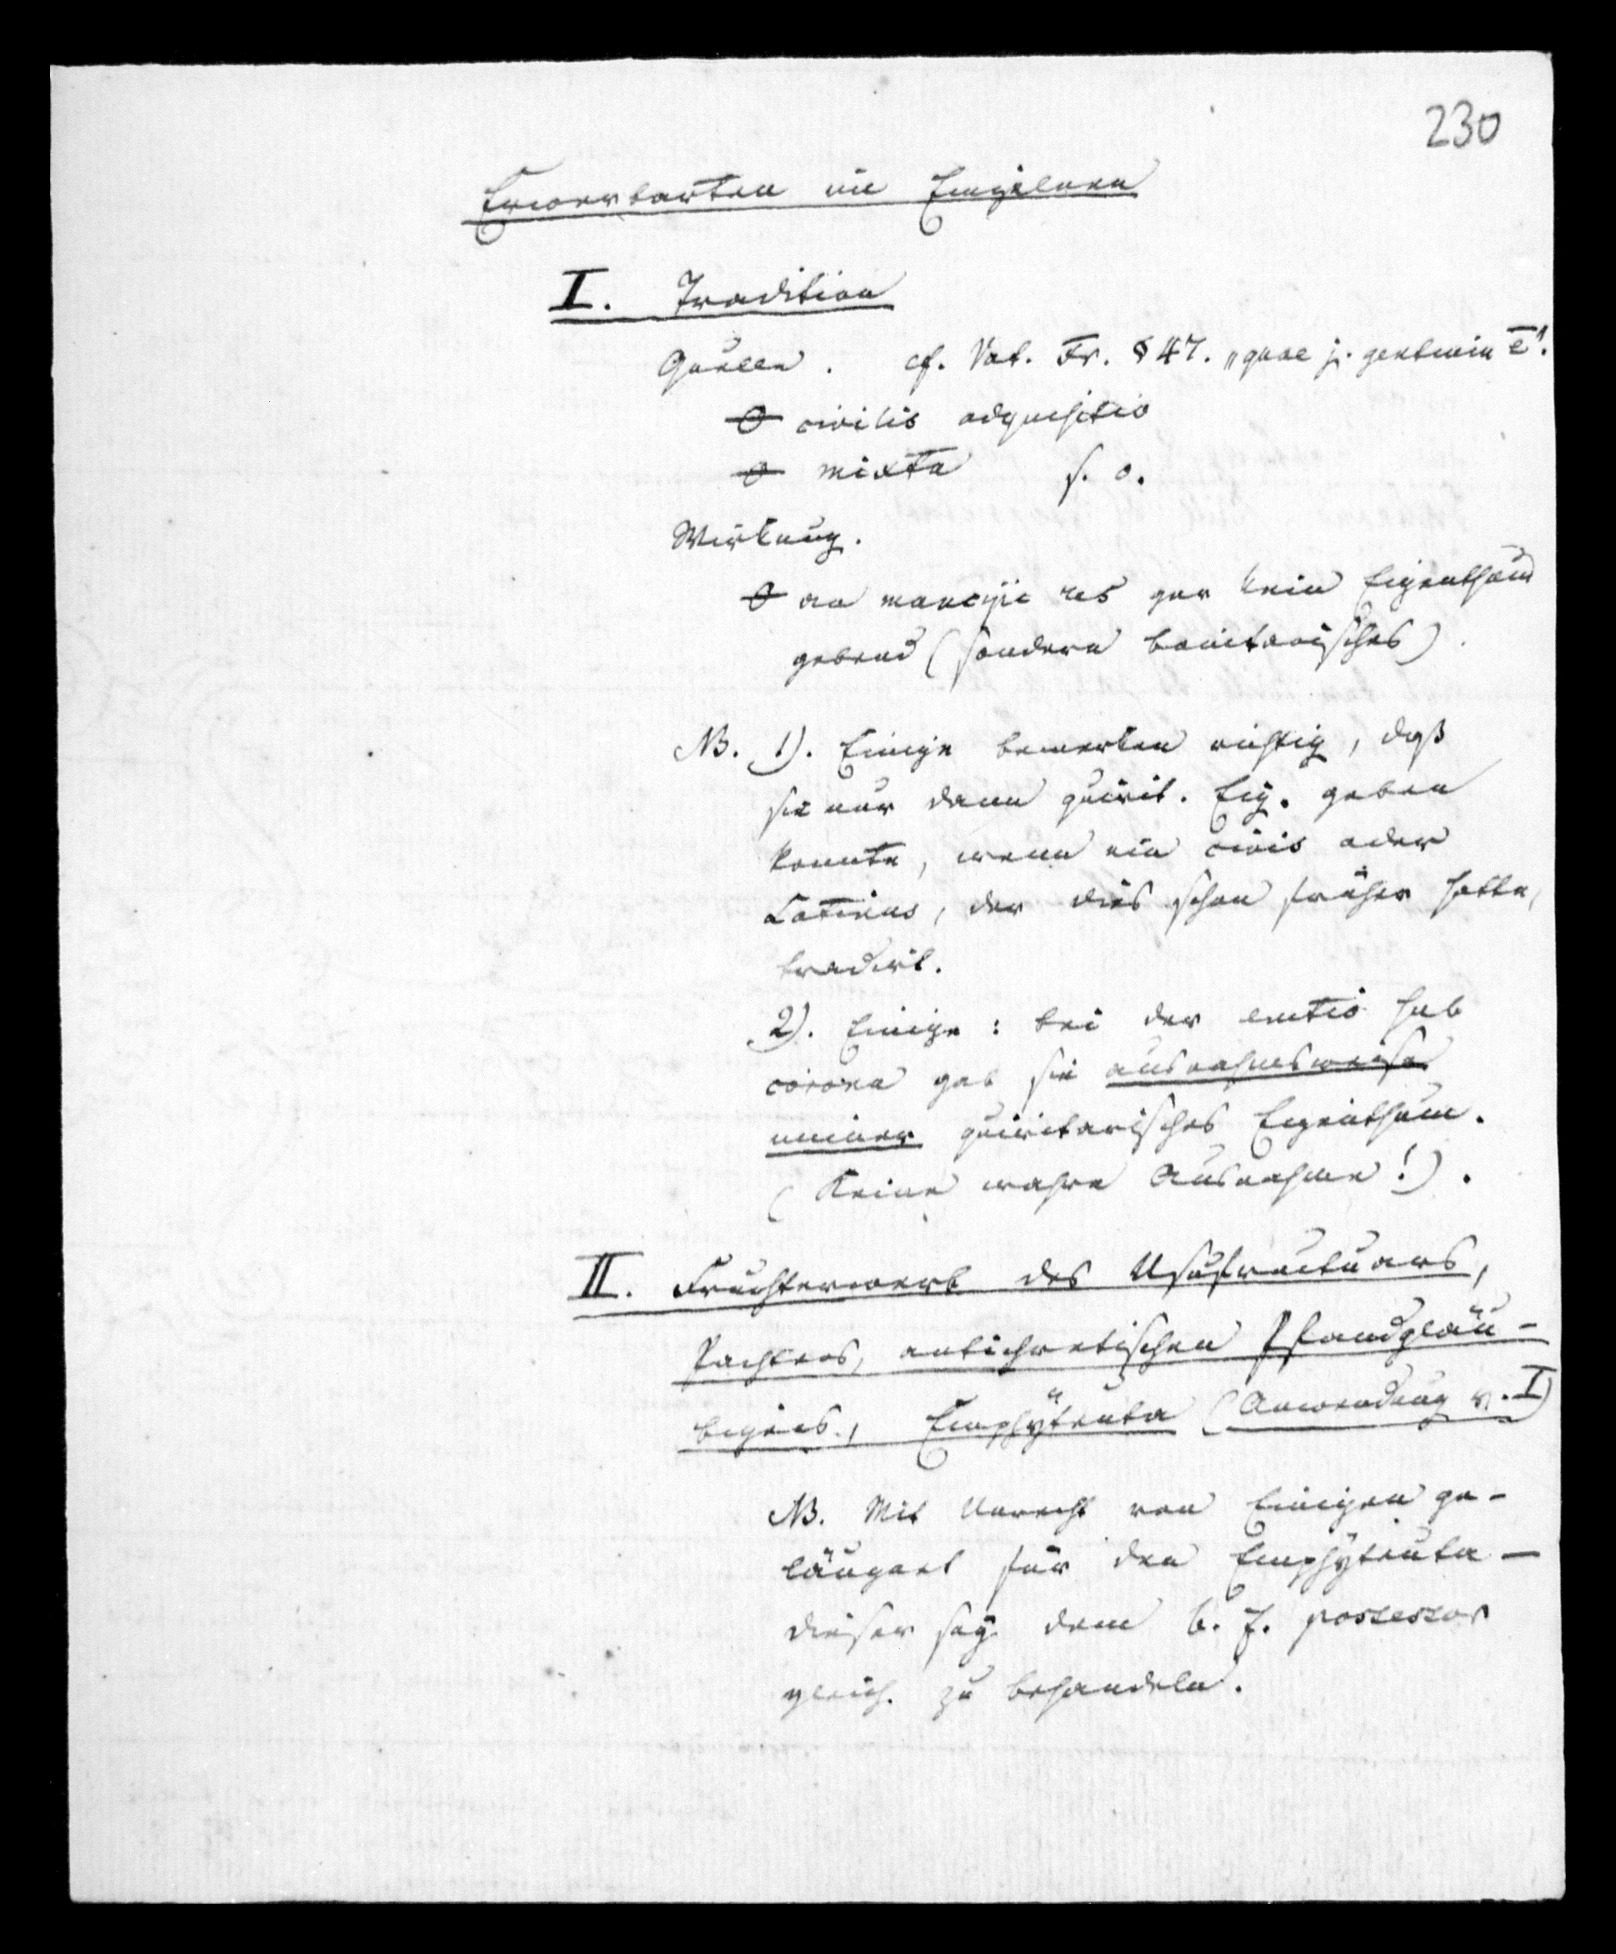 230
Erwerbarten im Einzelnen
I. Tradition
Quellen. cf. Vat. Fr. § 47. „quae j. gentium ē“.
θ civilis adquisitio
θ mixta s. o.
Wirkung.
θ an mancipi res gar kein Eigenthum
gebend (sondern bonitarisches).
NB. 1). Einige bemerken richtig, daß
sie nur dann quirit. Eig. geben
konnte, wenn ein civis oder
Latinus, der dies schon früher hatte,
tradirt.
2). Einige: bei der emtio sub
corona gab sie ausnahmsweise
immer quiritarisches Eigenthum.
(Keine wahre Ausnahme!).
II. Fruchterwerb des Usufructuars,
Pachters, antichretischen Pfandgläu-
bigers, Emphyteuta (Anwendung v. I)
NB. Mit Unrecht von Einigen ge-
läugnet für den Emphyteuta –
dieser sey dem b. f. possessor
gleich zu behandeln.